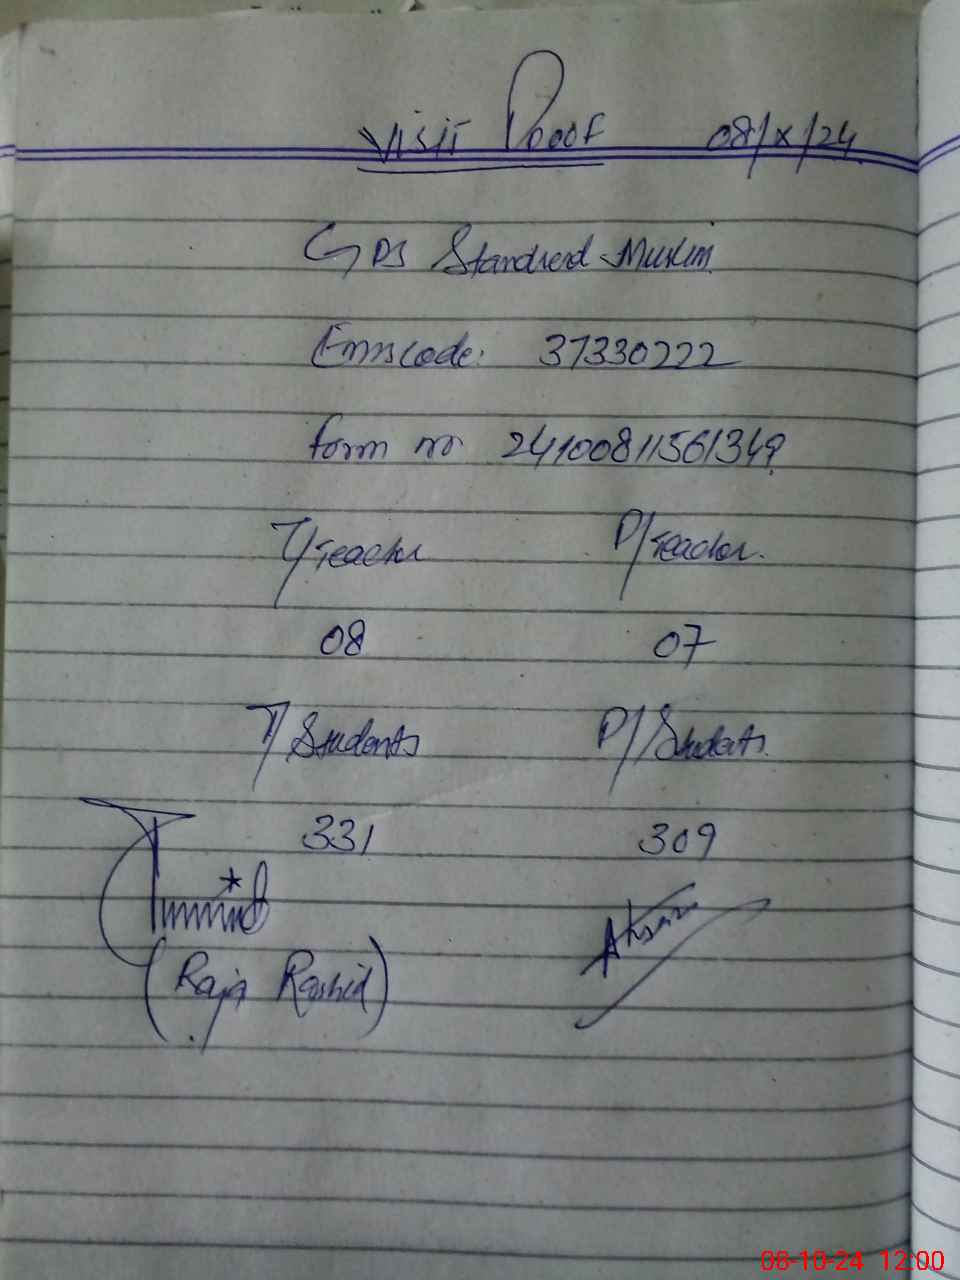 Visit Proof 08/X/24
GPS Standred Muslim
Emiscode: 37330222
form no 24100811561349
T/Teacher P/Teacher.
08 07
T/Students P/Students.
331 309
Ahsan
(Raja Rashid)
08-10-24 12:00